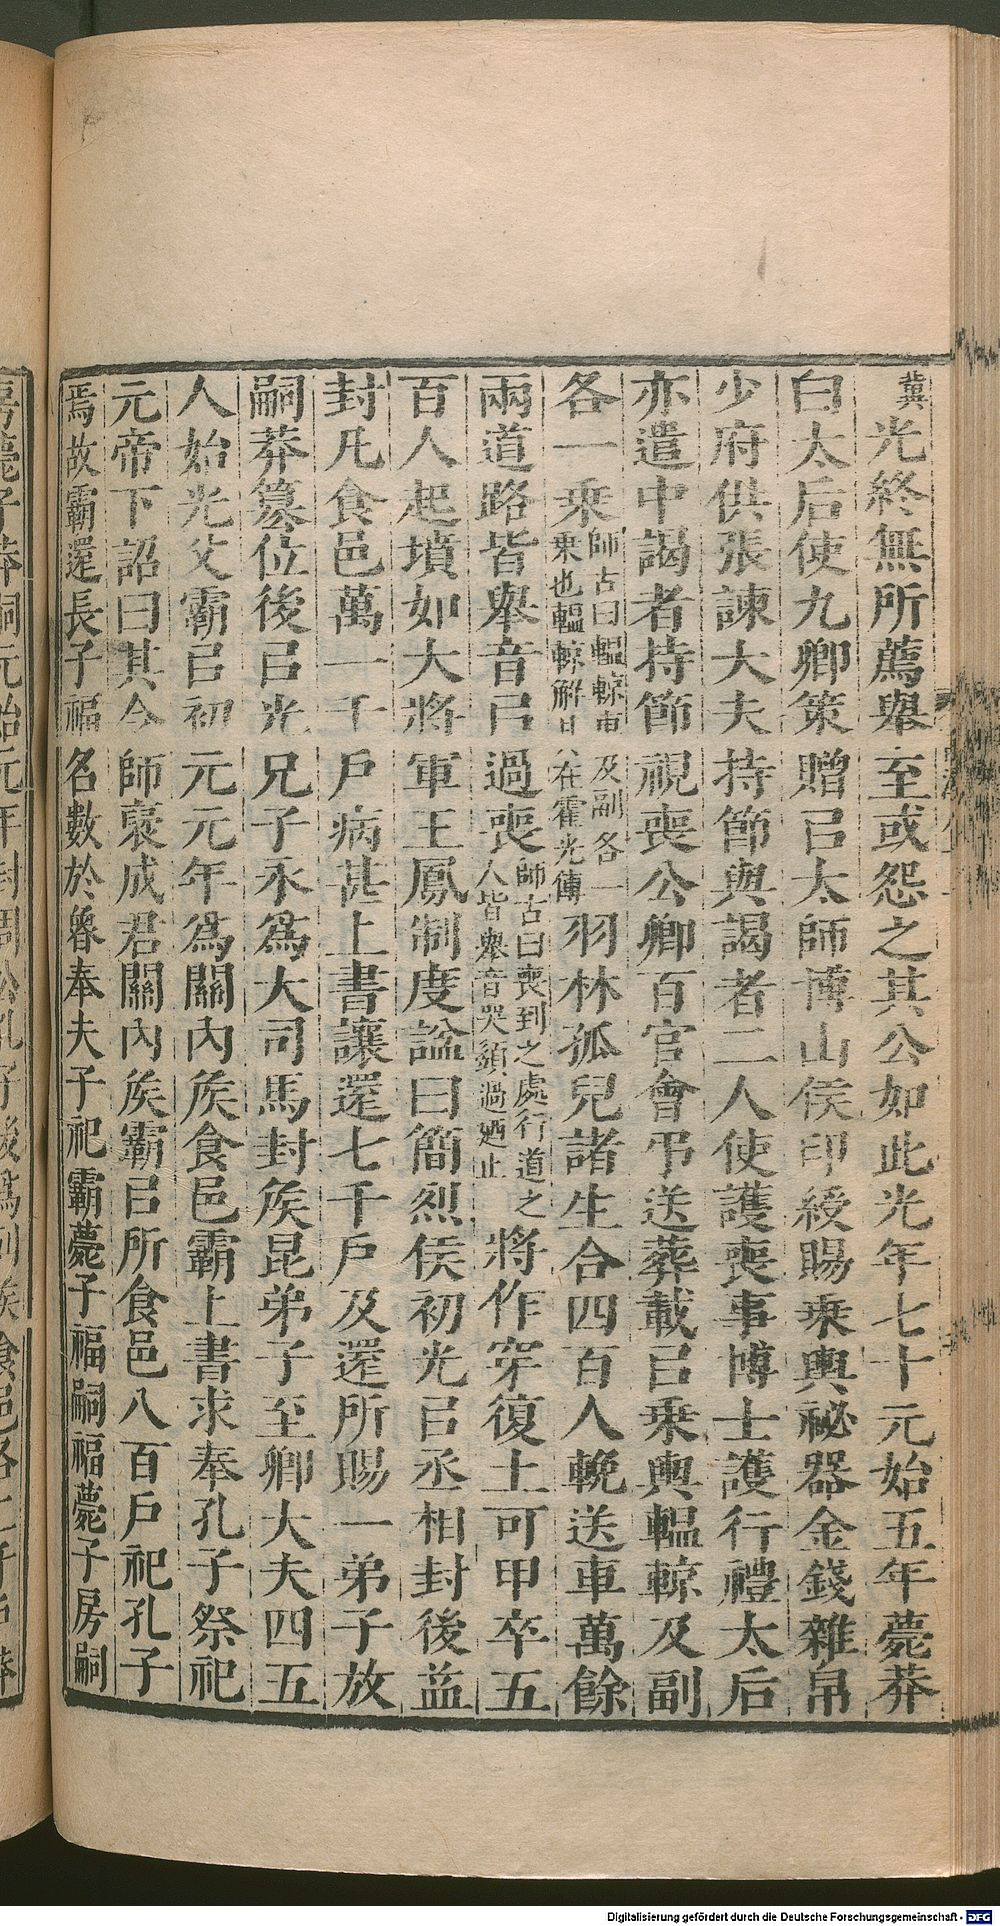 冀光終無所薦舉至或怨之其公如此光年七十元始五年薨莽
白太后使九卿策贈㠯太師博山侯印綬賜乗輿祕器金錢雜帛
少府供張諫大夫持節與謁者二人使護喪事博士護行禮太后
亦遣中謁者持節視喪公卿百官會弔送葬載㠯乗輿轀輬及副
各一乗師古曰轀輬車及副各一乗也轀輬解㠯在霍光傳羽林孤兒諸生合四百人輓送車萬餘
兩道路皆舉音㠯過喪師古曰喪到之處行道之人皆舉音哭須過廼止將作穿復土可甲卒五
百人起墳如大將軍王鳳制度諡曰簡烈侯初光㠯丞相封後益
封凡食邑萬一千戶病甚上書讓還七千戶及還所賜一弟子放
嗣莽篡位後㠯光兄子永爲大司馬封矦昆弟子至卿大夫四五
人始光父霸㠯初元元年爲關內矦食邑霸上書求奉孔子祭祀
元帝下詔曰其令師襃成君關內矦霸㠯所食邑八百戶祀孔子
焉故霸還長子福名數於魯奉夫子祀霸薨子福嗣福薨子房嗣
房薨子莽嗣元始元年封周公孔子後爲列矦食邑各二千戶莽
Digitalisierung gefördert durch die Deutsche Forschungsgemeinschaft - DFG